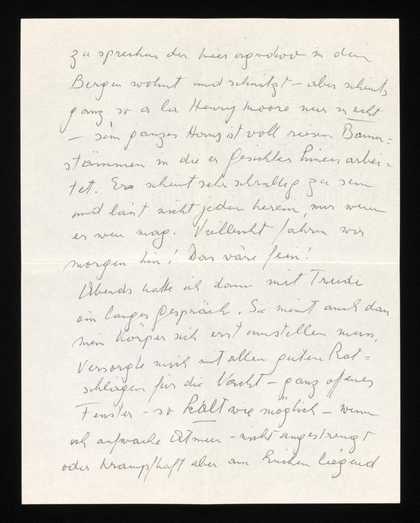 zu sprechen der hier irgendwo in den
Bergen wohnt und schnitzt – aber scheints
ganz so a la Henry Moore nur in echt
– sein ganzes Haus ist voll riesen Baum-
stämmen in die er Gesichter hineinarbei-
tet. Er scheint sehr schrullig zu sein
und lässt nicht jeden herein, nur wenn
er wen mag. Vielleicht fahren wir
morgen hin! Das wäre fein!
Abends hatte ich dann mit Trude
ein langes Gespräch. Sie meint auch dass
mein Körper sich erst umstellen muss,
versorgte mich mit allen guten Rat-
schlägen für die Nacht – ganz offenes
Fenster – so kalt wie möglich – wenn
ich aufwache Atmen – nicht angestrengt
oder krampfhaft aber am Rücken liegend